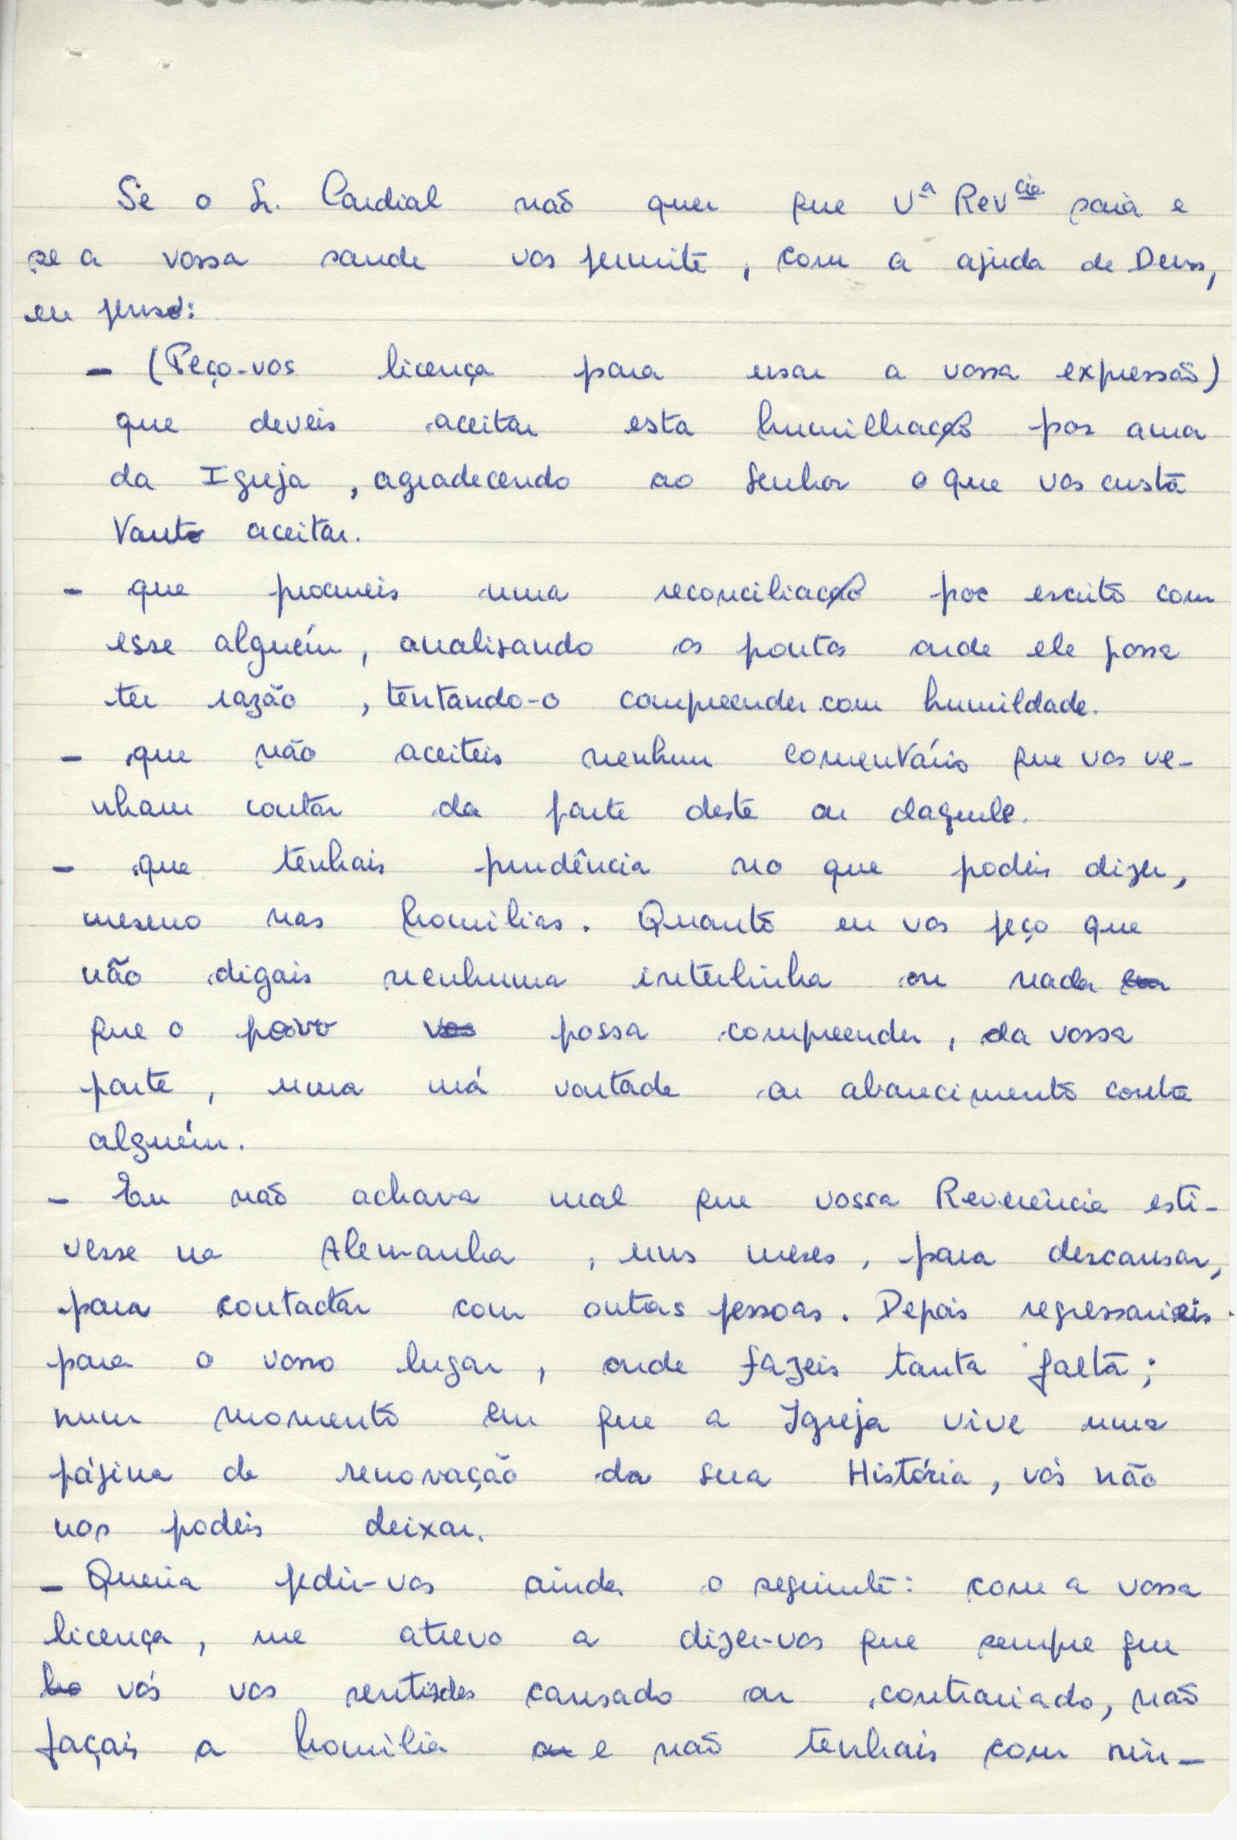 Se o Sr. Cardial não quer que Vª Revcia saia e
se a vossa saude vos permite, com a ajuda de Deus,
eu penso:
- (Peço-vos licença para usar a vossa expressão)
que deveis aceitar esta humilhação por amor
da Igreja, agradecendo ao Senhor o que vos custa
tanto aceitar.
- que procureis uma reconciliação por escrito com
esse alguém, analisando os pontos onde ele possa
ter razão, tentando-o compreender com humildade.
- que não aceiteis nenhum comentário que vos ve-
nham contar da parte deste ou daquele.
- que tenhais prudência no que podeis dizer,
mesmo nas homilias. Quanto eu vos peço que
não digais nenhuma interlinha ou nada
que o povo possa compreender, da vossa
parte, uma má vontade ou aborrecimento contra
alguém.
- Eu não achava mal que vossa Reverência esti-
vesse na Alemanha, uns meses, para descansar,
para contactar com outras pessoas. Depois regressarieis
para o vosso lugar, onde fazeis tanta falta;
num momento em que a Igreja vive uma
página de renovação da sua História, vós não
nos podeis deixar.
- Queria pedir-vos ainda o seguinte: com a vossa
licença, me atrevo a dizer-vos que sempre que
vós vos sentisdes cansado ou contrariado, não
façais a homilia e não tenhais com nin-